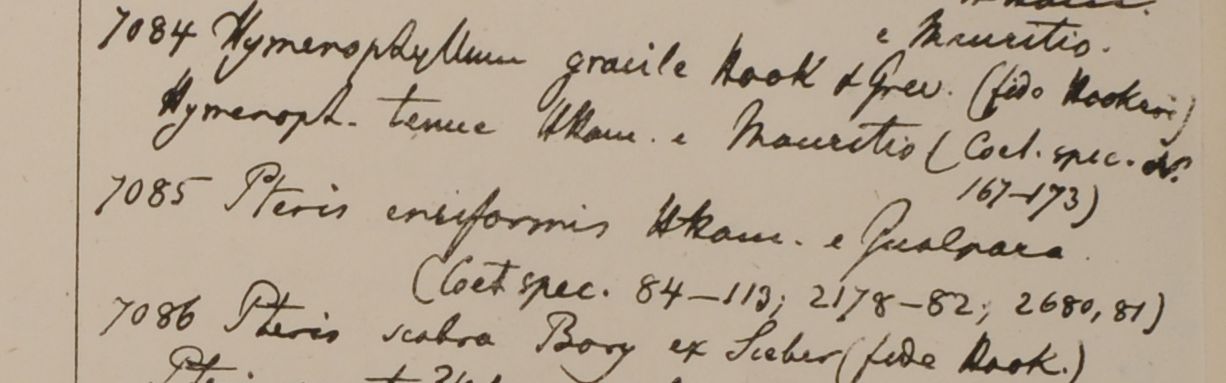 e Mauritio.
7084 Hymenophyllum gracile Hook & Grev. (fide Hookeri)
Hymenoph. tenue Wkaw. e Mauritio (Coel. spec. N.
167-173)
7085 Pteris ensiformis e Gualpara
(Coet spec. 84-113; 2178-82; 2680, 81)
7086 Pteris scabra Bory ex Sieber (fide Hook.)